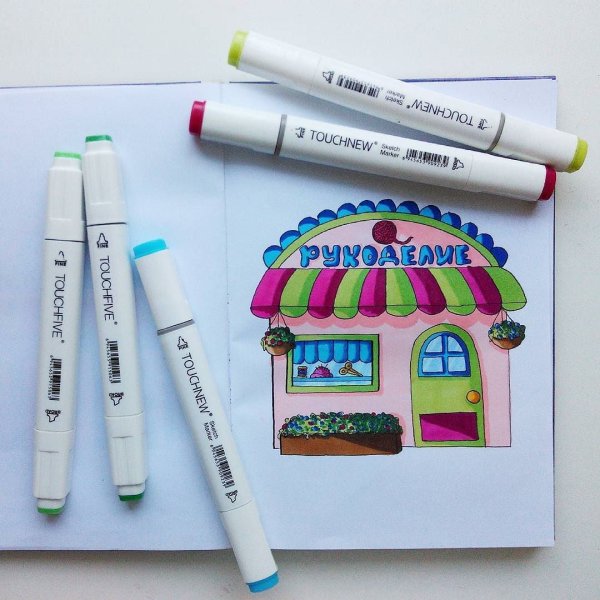 TOUCHNEW® Sketch Marker
TOUCHNEW® Sketch Marker
РУКОДЕЛИЕ
TOUCHFIVE®
TOUCHFIVE®
TOUCHNEW® Sketch Marker